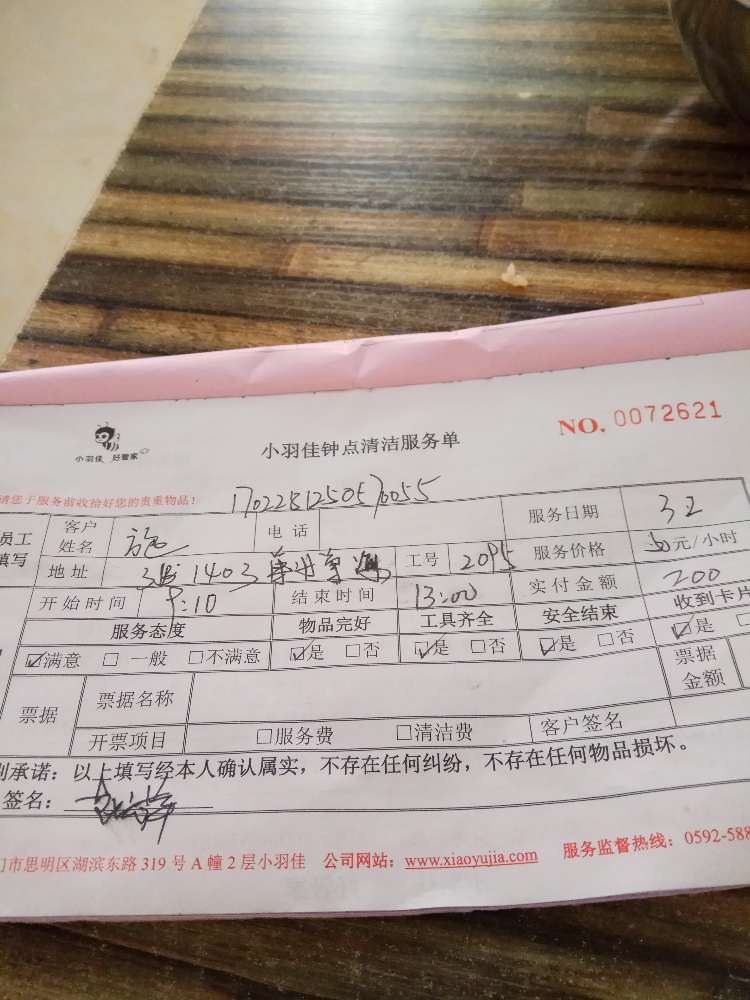 小羽佳 好管家
小羽佳钟点清洁服务单
NO. 0072621
请您于服务前收拾好您的贵重物品!
员工填写 客户姓名 施 电话 服务日期 32
地址 1403 工号 2095 服务价格 50元/小时
开始时间 9:10 结束时间 13:00 实付金额 200
服务态度 物品完好 工具齐全 安全结束 收到卡片
☑满意 □一般 □不满意 ☑是 □否 ☑是 □否 ☑是 □否 ☑是
票据 票据名称 票据金额
开票项目 □服务费 □清洁费 客户签名
承诺:以上填写经本人确认属实,不存在任何纠纷,不存在任何物品损坏。
签名:
市思明区湖滨东路319号A幢2层小羽佳 公司网站:www.xiaoyujia.com 服务监督热线:0592-588